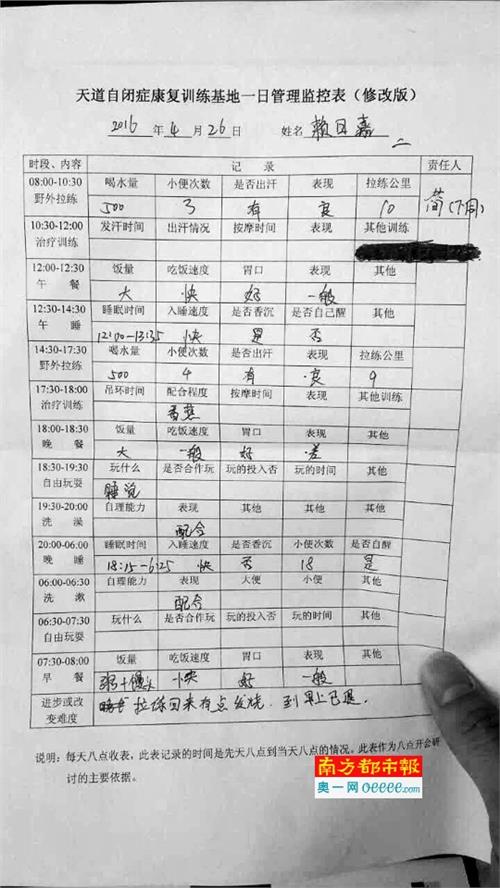 天道自闭症康复训练基地一日管理监控表（修改版）
2016 年 4 月 26 日 姓名 赖日嘉
时段、内容 记 录 责任人
08:00-10:30 喝水量 小便次数 是否出汗 表现 拉练公里
野外拉练 500 3 有 良 10
10:30-12:00 发汗时间 出汗情况 按摩时间 表现 其他训练
治疗训练
12:00-12:30 饭量 吃饭速度 胃口 表现 其他
午 餐 大 快 好 一般
12:30-14:30 睡眠时间 入睡速度 是否香沉 是否自己醒 其他
午 睡 12:00-13:35 快 是 否
14:30-17:30 喝水量 小便次数 是否出汗 表现 拉练公里
野外拉练 500 4 有 良 9
17:30-18:00 吊环时间 配合程度 按摩时间 表现 其他训练
治疗训练
18:00-18:30 饭量 吃饭速度 胃口 表现 其他
晚 餐 大 一般 好 差
18:30-19:30 玩什么 是否合作玩 玩的投入否 玩的时间 其他
自由玩耍 睡觉
19:30-20:00 自理能力 表现 其他 其他 其他
洗 澡 配合
20:00-06:00 睡眠时间 入睡速度 是否香沉 小便次数 是否自醒
晚 睡 18:15-6:25 快 否 18 是
06:00-06:30 自理能力 表现 大便 小便 其他
洗 漱 配合
06:30-07:30 玩什么 是否合作玩 玩的投入否 玩的时间 其他
自由玩耍
07:30-08:00 饭量 吃饭速度 胃口 表现 其他
早 餐 粥+馒头 快 好 一般
进步或改 拉练回来有点发烧，到早上已退。
变难度
说明：每天八点收表，此表记录的时间是先天八点到当天八点的情况。此表作为八点开会研
讨的主要依据。
南方都市報
奥一网 oeeee.com